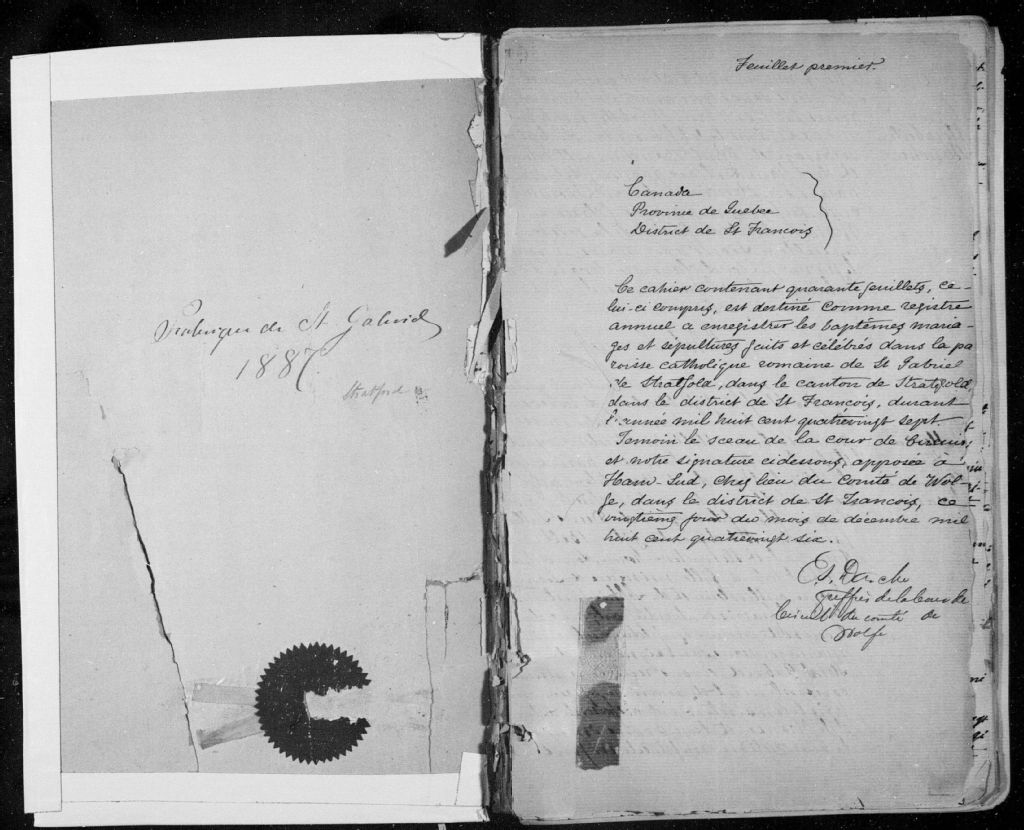 de St Gabriel
1887
Stratford
Feuillet premier.
Canada
Province de Quebec
District de St Francois
Ce cahier contenant quarante feuillets, ce-
lui-ci compris, est destiné comme registre
annuel a enregistrer les baptêmes maria-
ges et sépultures faits et célébrés dans la pa
roisse catholique romaine de St Gabriel
de Stratfold, dans le canton de Stratfold,
dans le district de St François, durant
l'année mil huit cent quatrevingt sept.
Temoin le sceau de la cour de Circuit,
et notre signature cidessous, apposée à
Ham-Sud, chef lieu du Comté de Wol-
fe, dans le district de St Francois, ce
vingtième jour du mois de décembre mil
huit cent quatrevingt six.
Greffier de la Cour de
Circuit du comté de
Wolfe